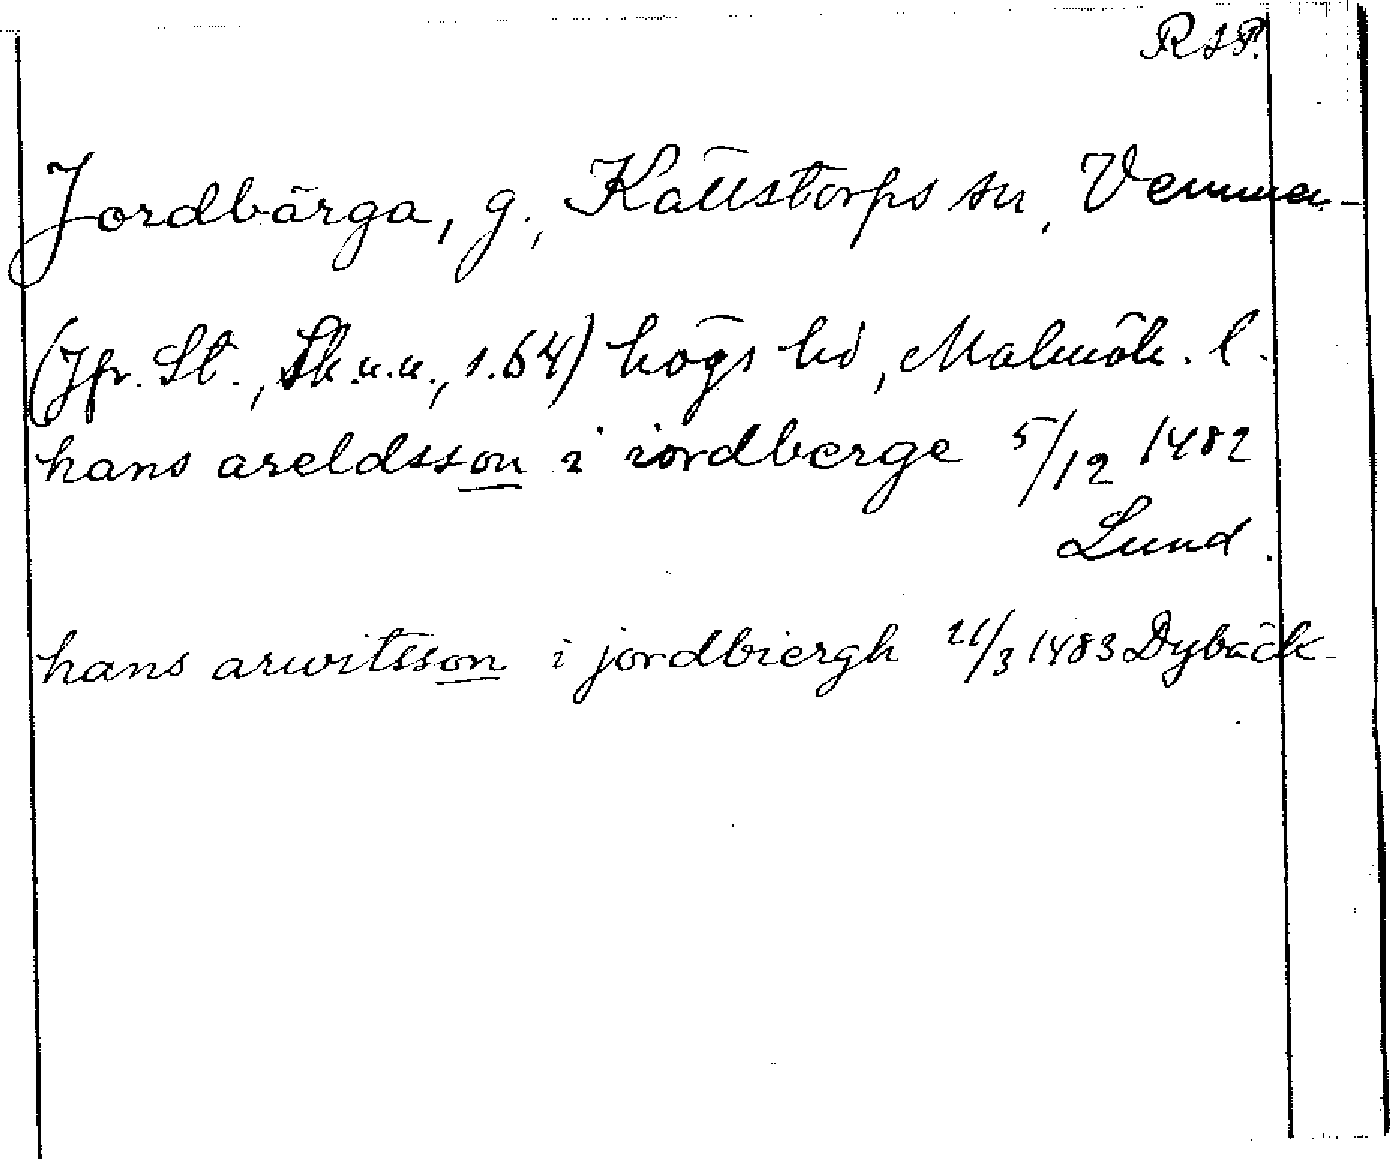 RAP.
Jordbärga, g., Källstorps sn, Vemmen-
(Jfr. St., Sk.u.u., s.64) högs hd, Malmöh. l.
hans areldsson i iordberge 5/12 1482
Lund.
hans arwitsson i jordbiergh 21/3 1483 Dybäck.